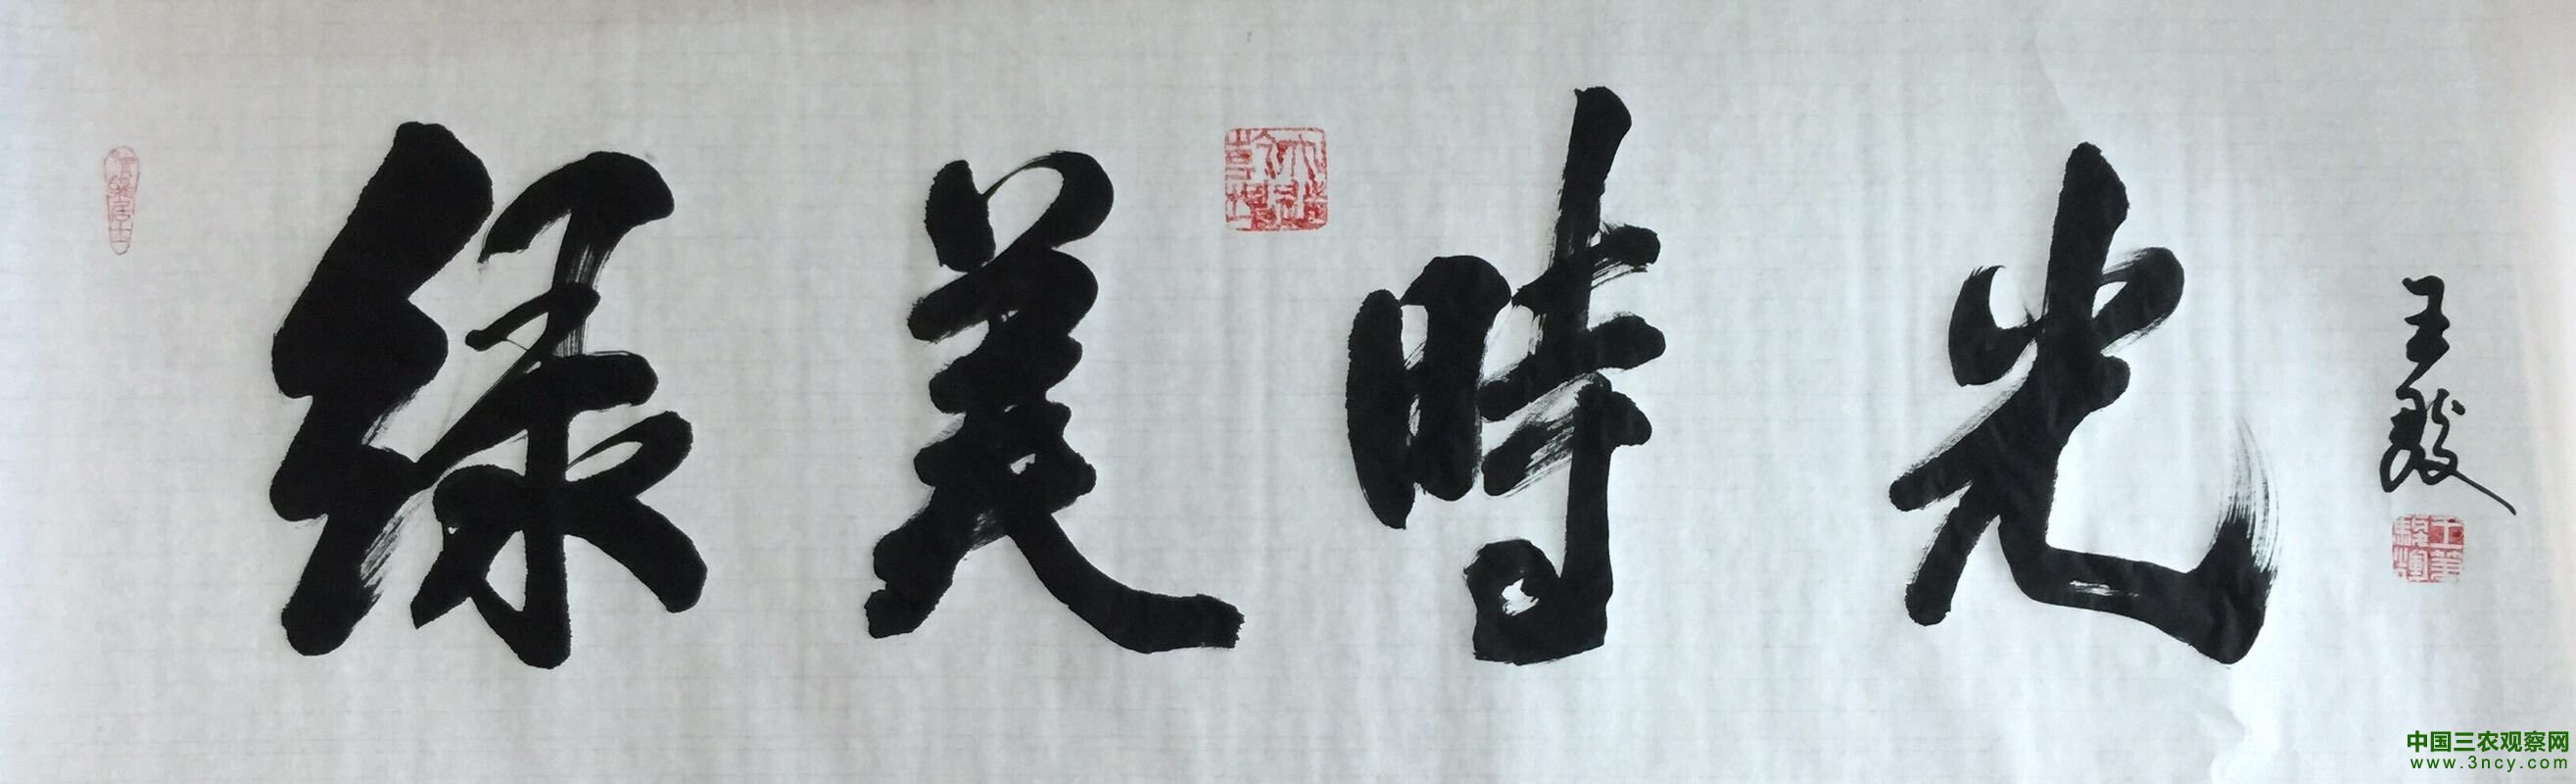 绿美時光
王毅
中国三农观察网
www.3ncy.com